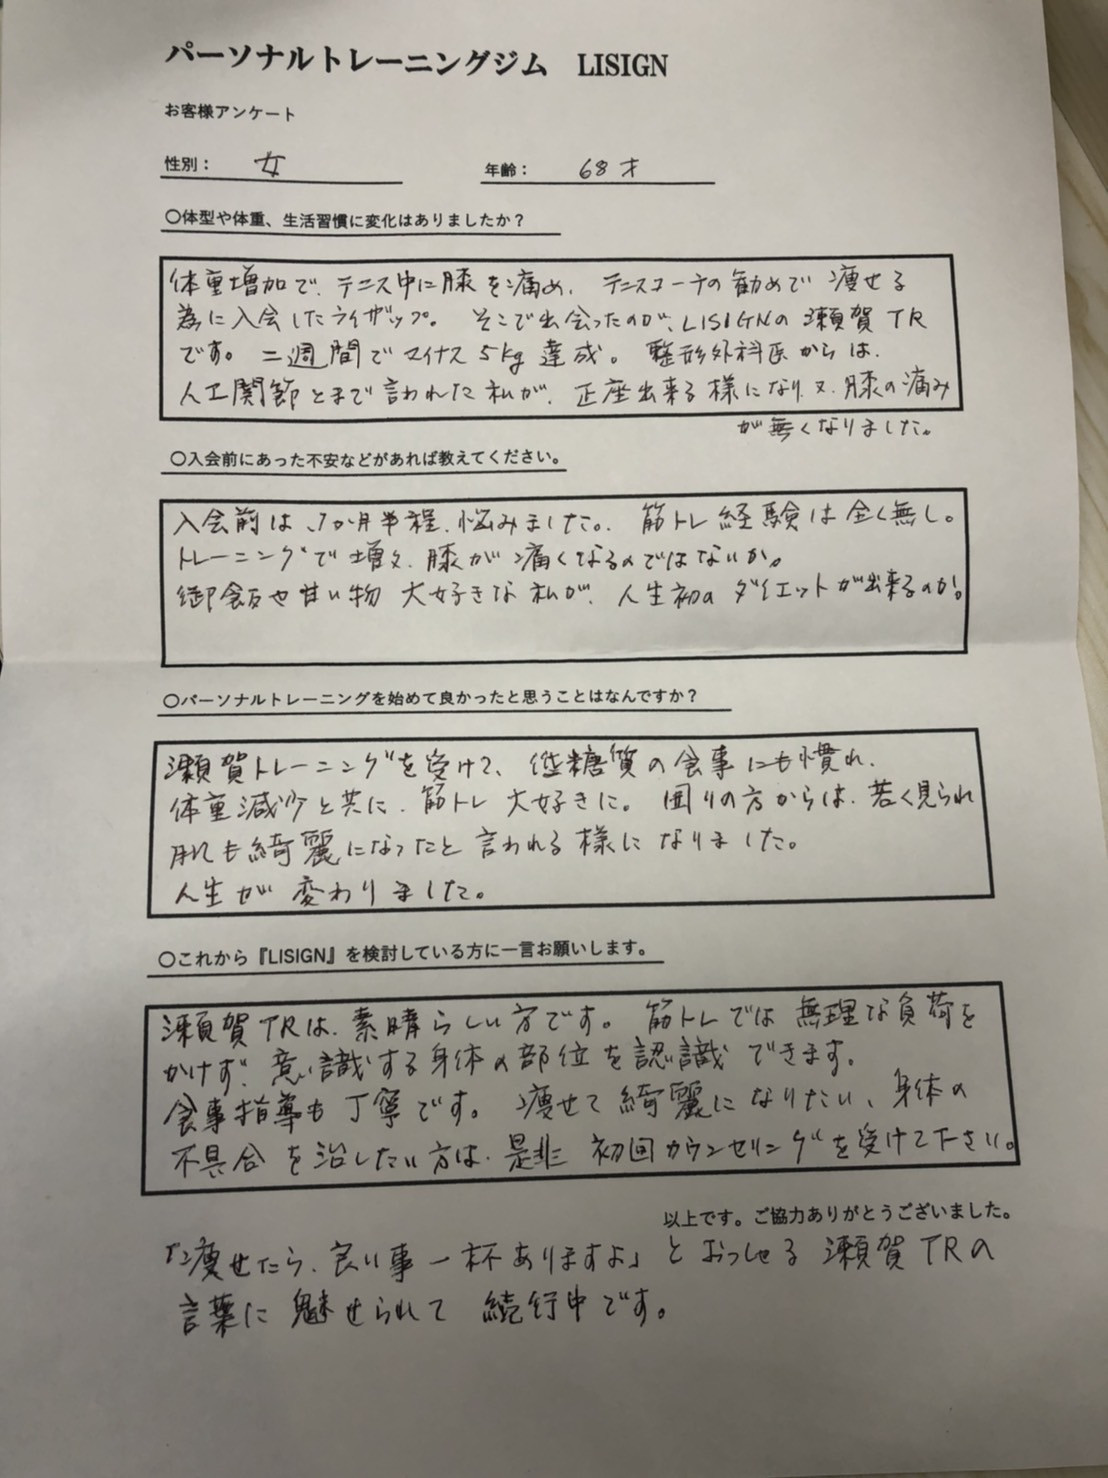 パーソナルトレーニングジム LISIGN
お客様アンケート
性別： 女 年齢： 68才
〇体型や体重、生活習慣に変化はありましたか？
体重増加で、テニス中に膝を痛め、テニスコーチの勧めで痩せる
為に入会したライザップ。そこで出会ったのが、LISIGNの瀬賀TR
です。二週間でマイナス5kg達成。整形外科医からは、
人工関節とまで言われた私が、正座出来る様になり、又、膝の痛み
が無くなりました。
〇入会前にあった不安などがあれば教えてください。
入会前は、1か月半程、悩みました。筋トレ経験は全く無し。
トレーニングで増々、膝が痛くなるのではないか。
御飯や甘い物大好きな私が、人生初のダイエットが出来るのか!
〇パーソナルトレーニングを始めて良かったと思うことはなんですか？
瀬賀トレーニングを受けて、低糖質の食事にも慣れ、
体重減少と共に、筋トレ大好きに。囲りの方からは、若く見られ
肌も綺麗になったと言われる様になりました。
人生が変わりました。
〇これから『LISIGN』を検討している方に一言お願いします。
瀬賀TRは、素晴らしい方です。筋トレでは無理な負荷を
かけず、意識する身体の部位を認識できます。
食事指導も丁寧です。痩せて綺麗になりたい、身体の
不具合を治したい方は、是非初回カウンセリングを受けて下さい。
以上です。ご協力ありがとうございました。
「痩せたら、良い事一杯ありますよ」とおっしゃる瀬賀TRの
言葉に魅せられて続行中です。